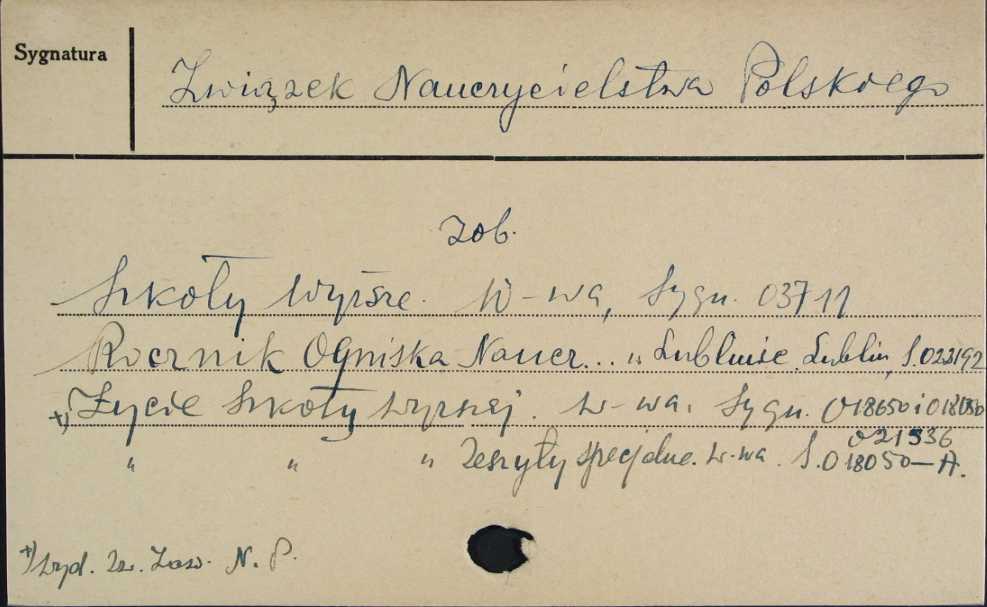 Sygnatura
Związek Nauczycielstwa Polskiego
zob.
Szkoły Wyższe. W-wa, Sygn. 03711
Rocznik Ogniska Naucz... w Lublinie. Lublin, S. 023192
+) Życie Szkoły Wyższej. W-wa. Sygn. 018650 i
021936
" " " Zeszyty specjalne. W-wa. S. 018050-A.
+) Wyd. Zw. Zaw. N. P.